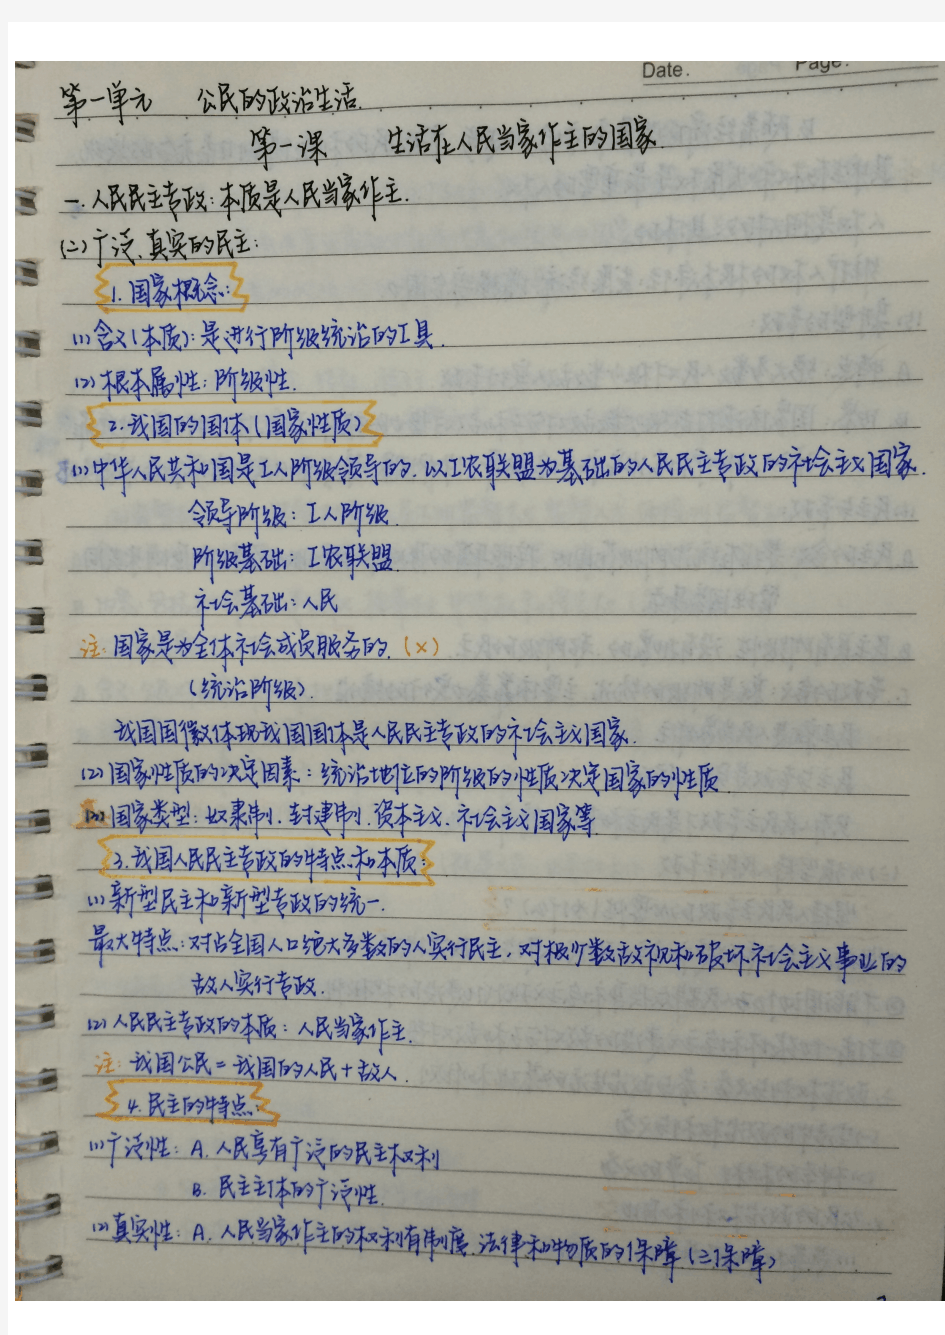 Date.
Page:
第一单元 公民的政治生活.
第一课 生活在人民当家作主的国家.
一.人民民主专政:本质是人民当家作主.
(二)广泛、真实的民主:
1.国家概念:
(1)含义(本质):是进行阶级统治的工具.
(2)根本属性:阶级性.
2.我国的国体(国家性质)
(1)中华人民共和国是工人阶级领导的.以工农联盟为基础的人民民主专政的社会主义国家.
领导阶级:工人阶级.
阶级基础:工农联盟.
社会基础:人民
注:国家是为全体社会成员服务的.(×)
(统治阶级).
我国国徽体现我国国体是人民民主专政的社会主义国家.
(2)国家性质的决定因素:统治地位的阶级的性质决定国家的性质.
国家类型:奴隶制.封建制.资本主义.社会主义国家等.
3.我国人民民主专政的特点和本质:
(1)新型民主和新型专政的统一.
最大特点:对占全国人口绝大多数的人实行民主,对极少数敌视和破坏社会主义事业的
敌人实行专政.
(2)人民民主专政的本质:人民当家作主.
注:我国公民=我国的人民+敌人.
4.民主的特点:
(1)广泛性:A.人民享有广泛的民主权利
B.民主主体的广泛性.
(2)真实性:A.人民当家作主的权利有制度.法律和物质的保障(三保障)